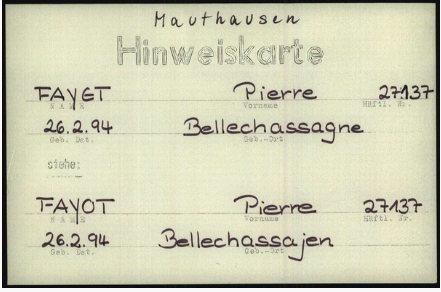 Mauthausen
Hinweiskarte
FAYET Pierre 27137
NAME Vorname Häftl. Nr.
26.2.94 Bellechassagne
Geb. Dat. Geb.-Ort
siehe:
FAYOT Pierre 27137
NAME Vorname Häftl. Nr.
26.2.94 Bellechassajen
Geb. Dat. Geb.-Ort